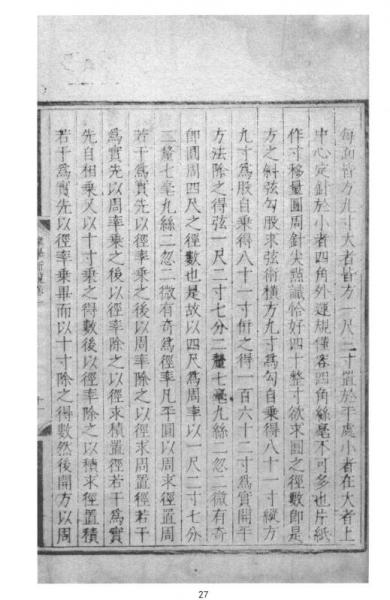 每面皆方九寸大者皆方一尺二寸置於平處小者在大者上
中心定針於小者四角外運規僅容四角絲毫不可多也片紙
作寸移量圓周針尖點識恰好四十整寸欲求圓之徑數即是
方之斜弦勾股求弦術橫方九寸為勾自乘得八十一寸縱方
九寸為股自乘得八十一寸併之得一百六十二寸為實開平
方法除之得弦一尺二寸七分二釐七毫九絲二忽二微有奇
即圓周四尺之徑數也是故以四尺為周率以一尺二寸七分
二釐七毫九絲二忽二微有奇為徑率凡平圓以周求徑置周
若干為實先以徑率乘之後以周率除之以徑求周置徑若干
為實先以周率乘之後以徑率除之以徑求積置徑若干為實
先自相乘又以十寸乘之得數後以徑率除之以積求徑置積
若干為實先以徑率乘畢而以十寸除之得數然後開方以周
十一
27